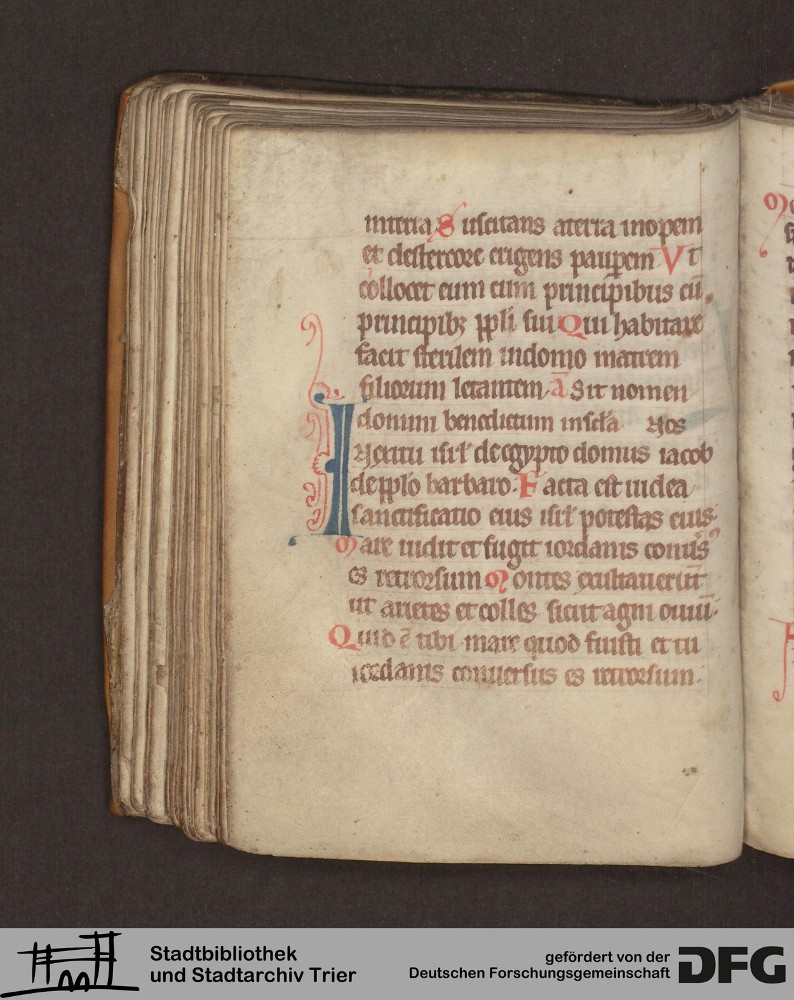 interra Suscitans aterra inopem
et destercore erigens pauꝑem Vt
collocet eum cum principibus cū
principibꝫ ppl̄i sui Qui habitare
facit sterilem indomo matrem
filiorum letantem ā Sit nomen
domini benedictum insc̄l'a
In exitu isrl̄ deegypto domus iacob
depplo barbaro. Facta est iudea
sanctificatio eius isrl̄ potestas eius.
Mare uidit et fugit iordanis conuīs
es retrorsum Montes exultauerūt
ut arietes et colles sicut agni ouiū.
Quid ē tibi mare quod fuisti et tu
iordanis conuersus es retrorsum.
Stadtbibliothek
und Stadtarchiv Trier
gefördert von der
Deutschen Forschungsgemeinschaft
DFG